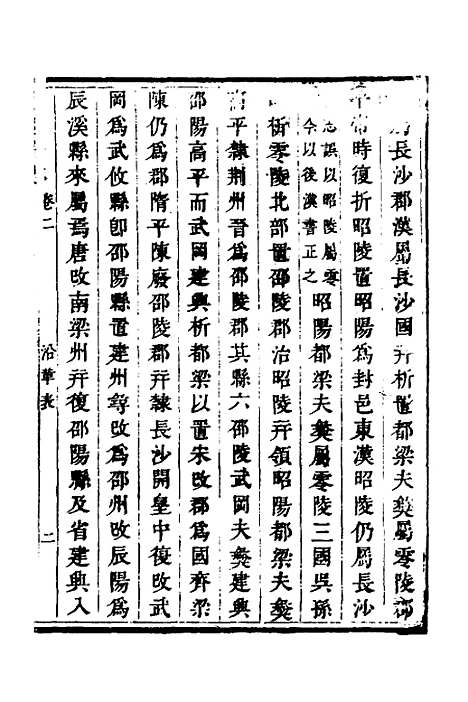 屬長沙郡漢屬長沙國并析置都梁夫夷屬零陵郡
平帝時復折昭陵置昭陽爲封邑東漢昭陵仍屬長沙
志誤以昭陵屬零
今以後漢書正之
昭陽都梁夫夷屬零陵三國吳孫
析零陵北部置邵陵郡治昭陵并領昭陽都梁夫夷
高平隸荆州晉爲邵陵郡其縣六邵陵武岡夫夷建興
邵陽高平而武岡建興析都梁以置宋改郡爲國齊梁
陳仍爲郡隋平陳廢邵陵郡并隸長沙開皇中復改武
岡爲武攸縣卽邵陽縣置建州尋改爲邵州改辰陽爲
辰溪縣來屬焉唐改南梁州并復邵陽縣及省建興入
卷二
沿革表
二